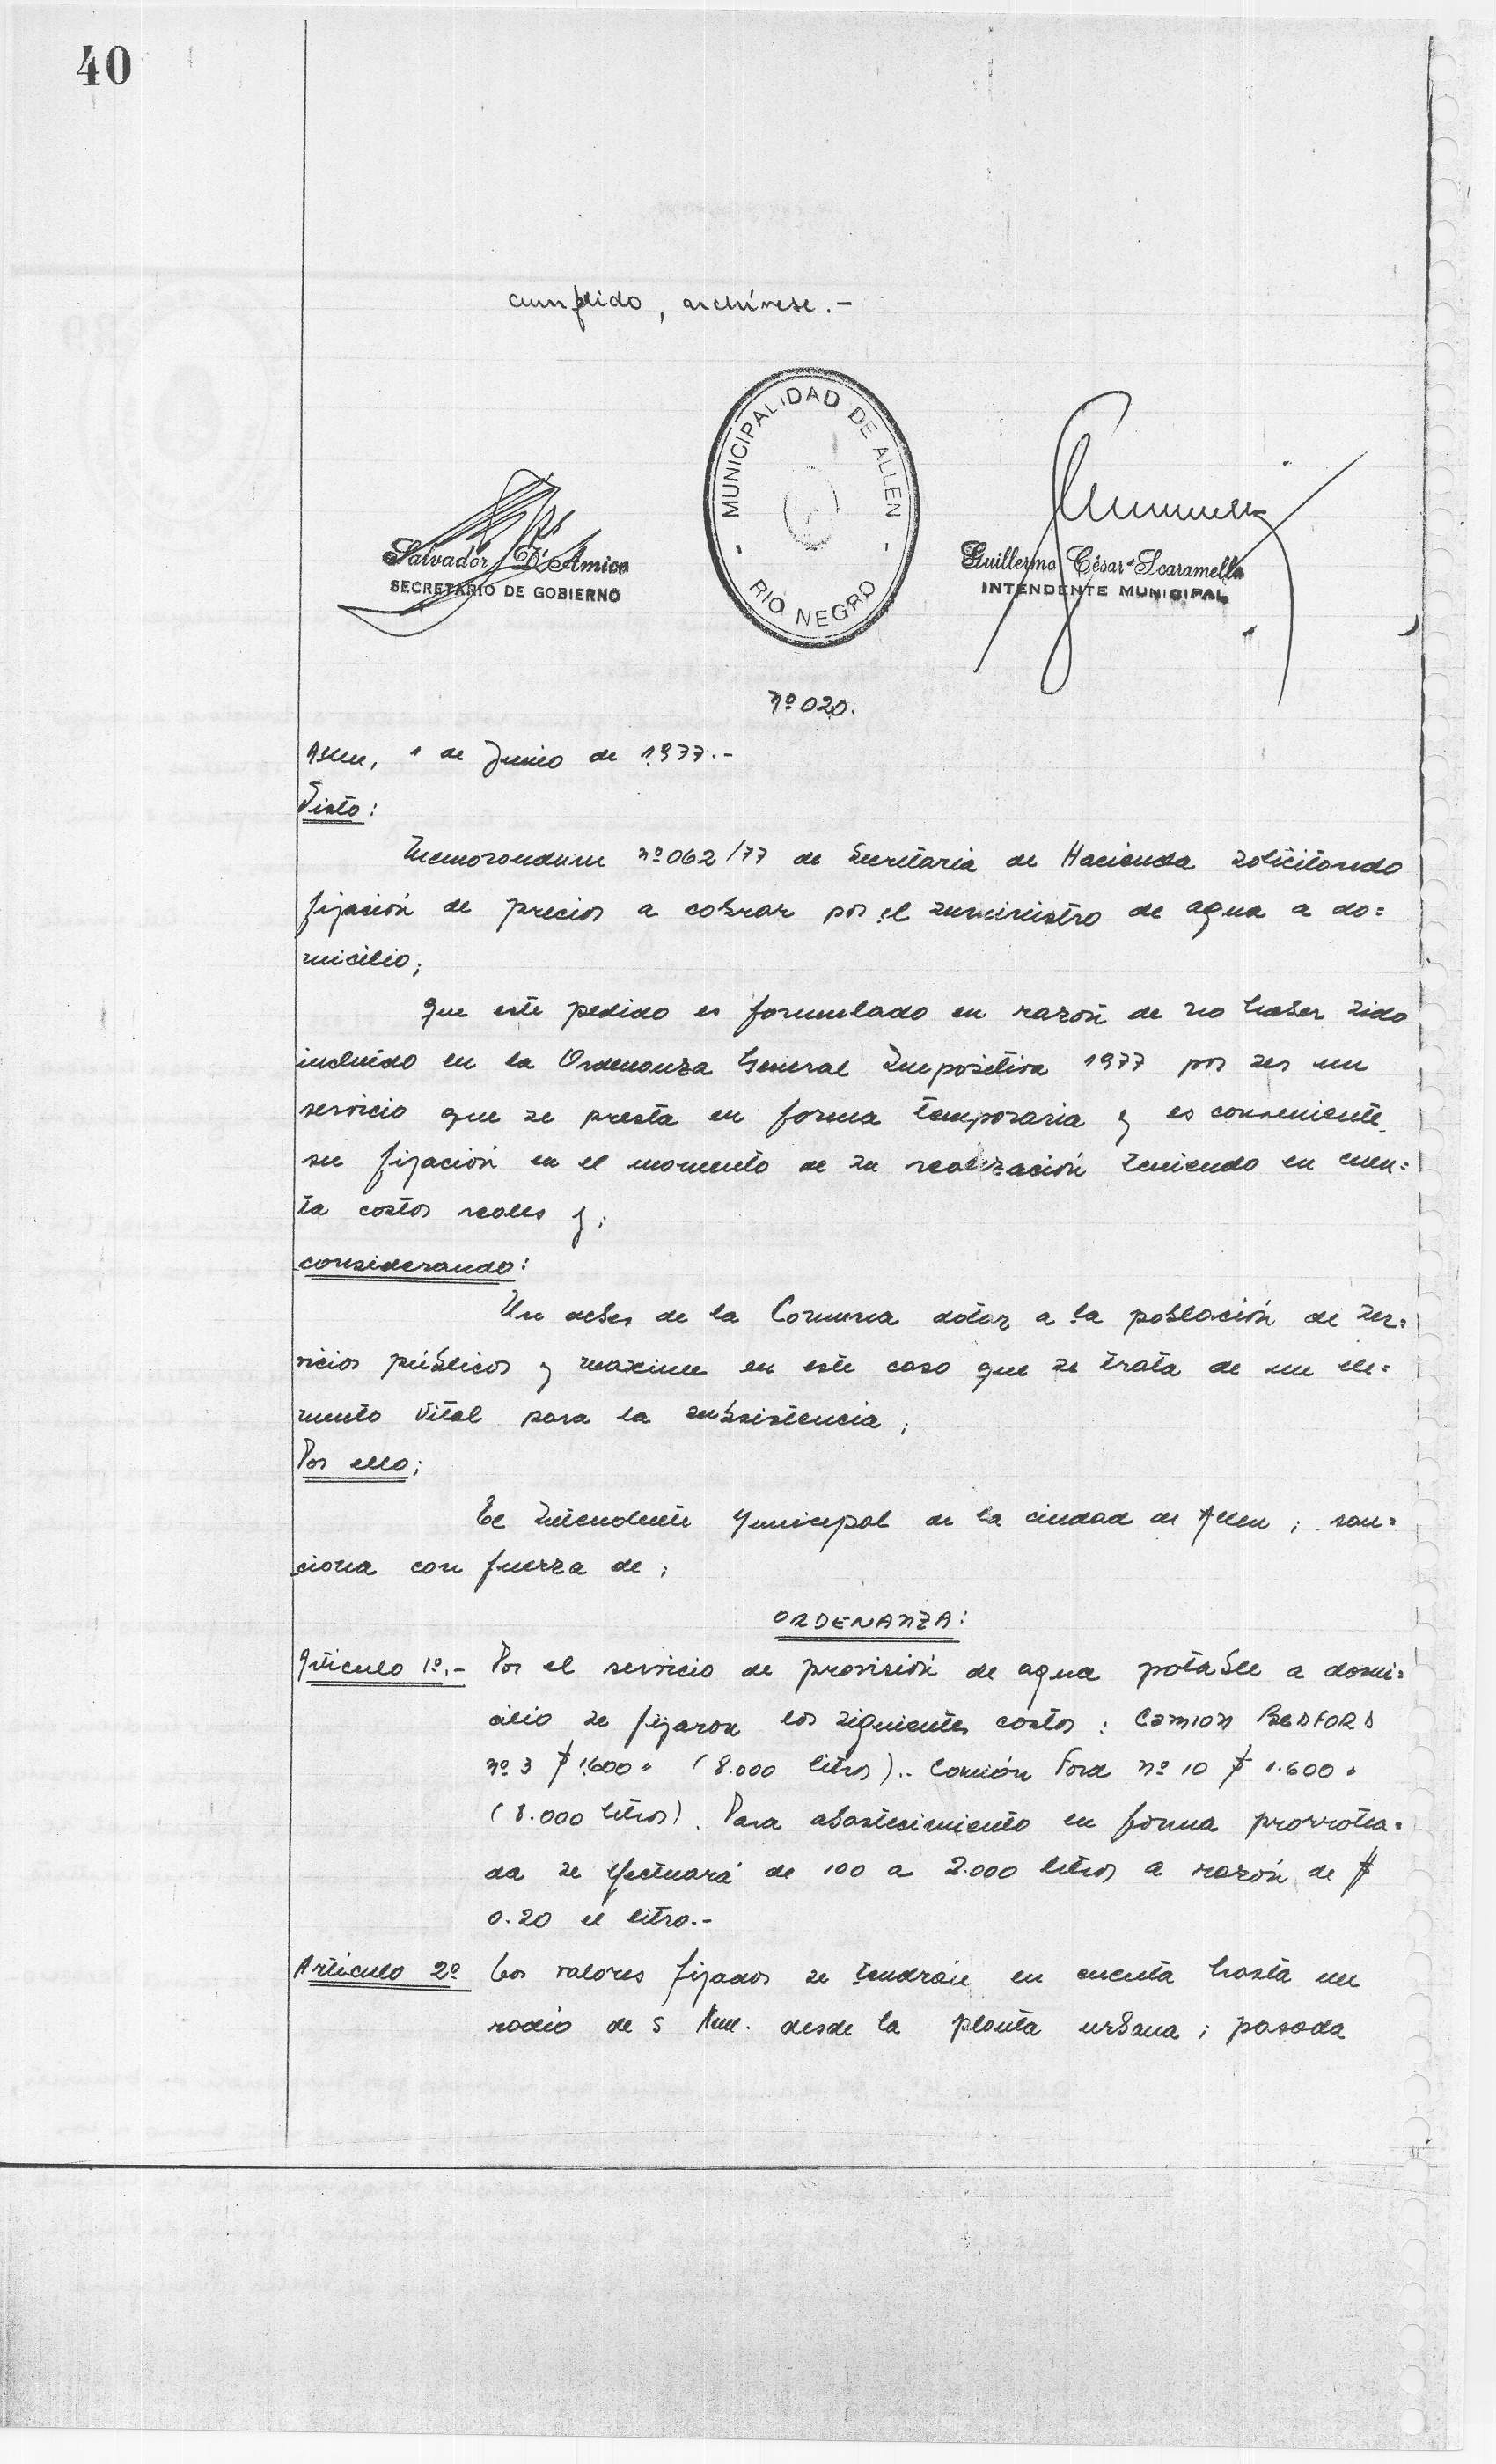 40
cumplido, archívese.-
MUNICIPALIDAD DE ALLEN
- RIO NEGRO -
Salvador D'Amico
SECRETARIO DE GOBIERNO
Guillermo César Scaramella
INTENDENTE MUNICIPAL
Nº 020.
Allen, 1 de Junio de 1977.-
Visto:
Memorandum nº 062/77 de Secretaria de Hacienda solicitando
fijación de precios a cobrar por el suministro de agua a do=
micilio;
Que este pedido es formulado en razón de no haber sido
incluído en la Ordenanza General Impositiva 1977 por ser un
servicio que se presta en forma temporaria y es conveniente
su fijación en el momento de su realización teniendo en cuen=
ta costos reales y;
considerando:
Un deber de la Comuna dotar a la población de ser=
vicios públicos y maxime en este caso que se trata de un ele=
mento vital para la subsistencia;
Por ello;
El Intendente Municipal de la ciudad de Allen; san=
ciona con fuerza de;
ORDENANZA:
Artículo 1º.- Por el servicio de provisión de agua potable a domi=
cilio se fijaron los siguientes costos: CAMION BEDFORD
nº 3 $ 1.600= (8.000 litros).. Camión Ford nº 10 $ 1.600=
(8.000 litros). Para abastecimiento en forma prorrotea=
da se efectuará de 100 a 2.000 litros a razón de $
0.20 el litro.-
Artículo 2º Los valores fijados se tendrán en cuenta hasta un
radio de 5 Km. desde la planta urbana; pasada